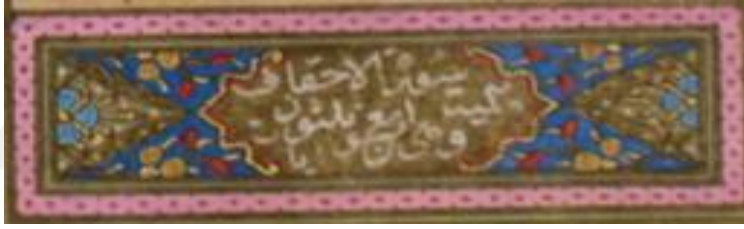 سورة الاحقاف
مكية
وهي اربع وثلثون